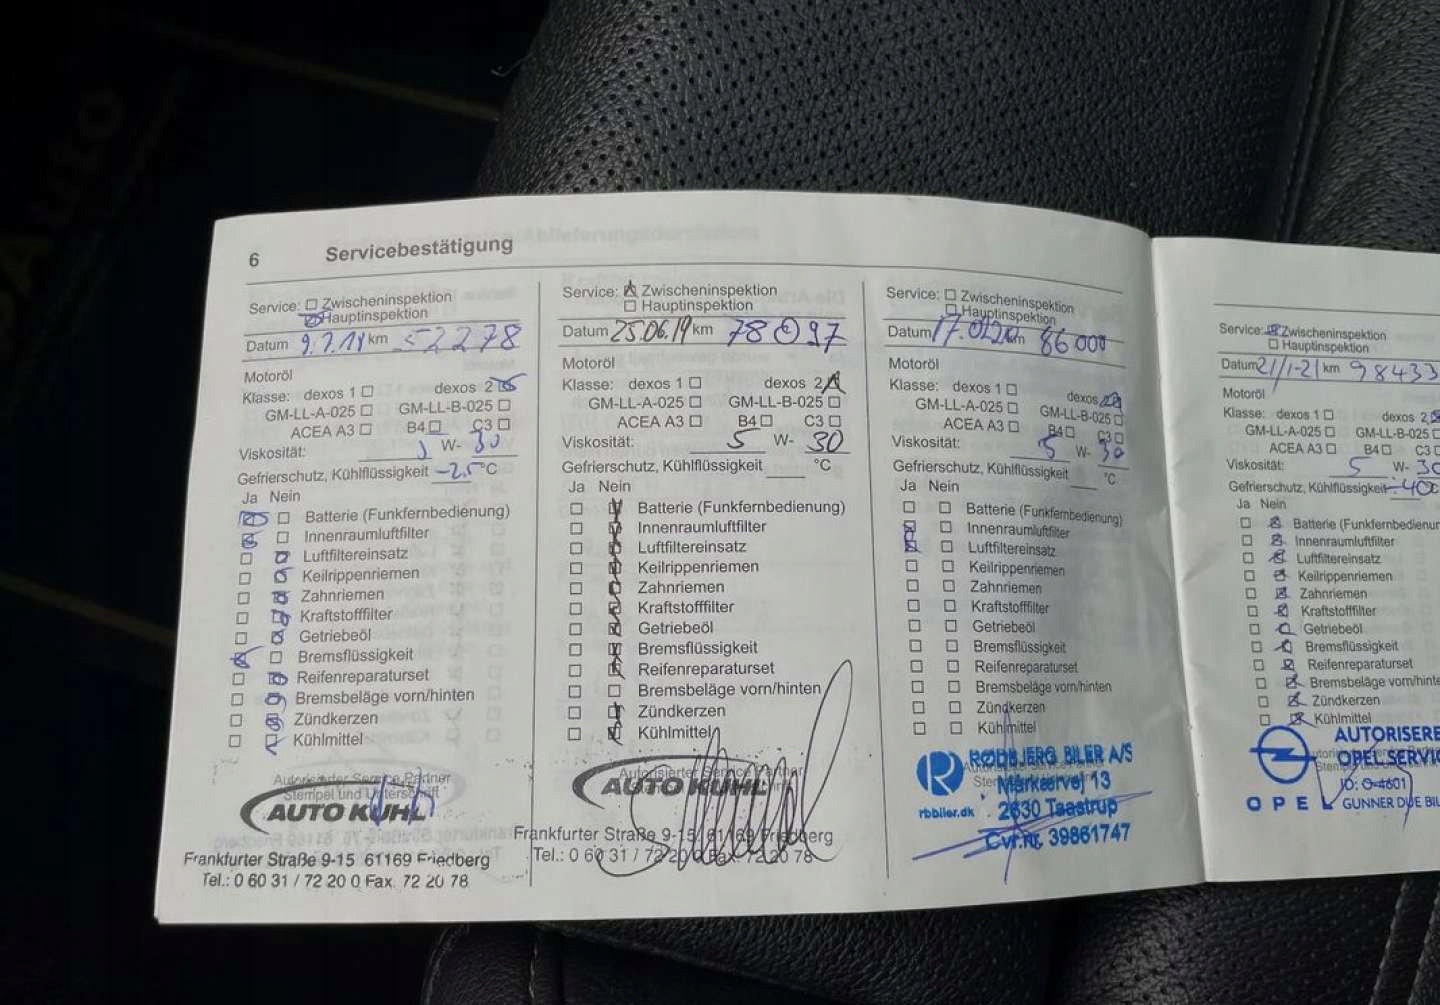 6 Servicebestätigung
Service: Zwischeninspektion
Hauptinspektion
Datum km 52278
Motoröl
Klasse: dexos 1 dexos 2
GM-LL-A-025 GM-LL-B-025
ACEA A3 B4 C3
Viskosität: W- 30
Gefrierschutz, Kühlflüssigkeit -25 °C
Ja Nein
Batterie (Funkfernbedienung)
Innenraumluftfilter
Luftfiltereinsatz
Keilrippenriemen
Zahnriemen
Kraftstofffilter
Getriebeöl
Bremsflüssigkeit
Reifenreparaturset
Bremsbeläge vorn/hinten
Zündkerzen
Kühlmittel
Autorisierter Service Partner
Stempel und Unterschrift
AUTO KÜHL
Frankfurter Straße 9-15 61169 Friedberg
Tel.: 0 60 31 / 72 20 0 Fax. 72 20 78
Service: Zwischeninspektion
Hauptinspektion
Datum 25.06.19 km 78097
Motoröl
Klasse: dexos 1 dexos 2
GM-LL-A-025 GM-LL-B-025
ACEA A3 B4 C3
Viskosität: 5 W- 30
Gefrierschutz, Kühlflüssigkeit °C
Ja Nein
Batterie (Funkfernbedienung)
Innenraumluftfilter
Luftfiltereinsatz
Keilrippenriemen
Zahnriemen
Kraftstofffilter
Getriebeöl
Bremsflüssigkeit
Reifenreparaturset
Bremsbeläge vorn/hinten
Zündkerzen
Kühlmittel
Autorisierter Service Partner
AUTO KÜHL
Frankfurter Straße 9-15 61169 Friedberg
Tel.: 0 60 31 / 72 20 0 Fax. 72 20 78
Service: Zwischeninspektion
Hauptinspektion
Datum km 86000
Motoröl
Klasse: dexos 1 dexos
GM-LL-A-025 GM-LL-B-025
ACEA A3 B4 C3
Viskosität: 5 W- 30
Gefrierschutz, Kühlflüssigkeit °C
Ja Nein
Batterie (Funkfernbedienung)
Innenraumluftfilter
Luftfiltereinsatz
Keilrippenriemen
Zahnriemen
Kraftstofffilter
Getriebeöl
Bremsflüssigkeit
Reifenreparaturset
Bremsbeläge vorn/hinten
Zündkerzen
Kühlmittel
RØDBJERG BILER A/S
Mårkærvej 13
rbbiler.dk 2630 Taastrup
Cvr.nr. 39861747
Service: Zwischeninspektion
Hauptinspektion
Datum 21/1-21 km 98433
Motoröl
Klasse: dexos 1 dexos 2
GM-LL-A-025 GM-LL-B-025
ACEA A3 B4 C3
Viskosität: 5 W- 30
Gefrierschutz, Kühlflüssigkeit -40
Ja Nein
Batterie (Funkfernbedienu
Innenraumluftfilter
Luftfiltereinsatz
Keilrippenriemen
Zahnriemen
Kraftstofffilter
Getriebeöl
Bremsflüssigkeit
Reifenreparaturset
Bremsbeläge vorn/hinte
Zündkerzen
Kühlmittel
AUTORISERE
OPEL SERVIC
ID: O-4601
OPEL GUNNER DUE BIL